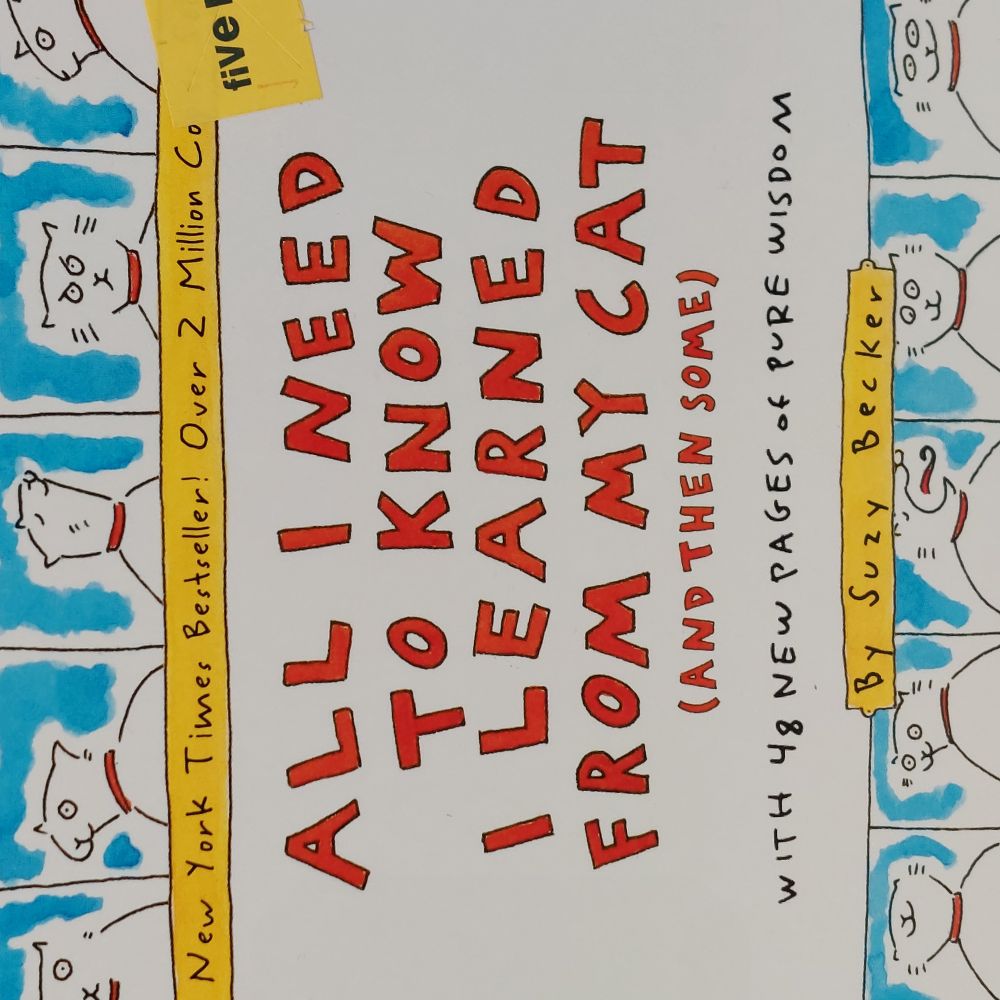 five
New York Times Bestseller! Over 2 Million
ALL I NEED
TO KNOW
I LEARNED
FROM MY CAT
(AND THEN SOME)
WITH 48 NEW PAGES of PURE WISDOM
By Suzy Becker